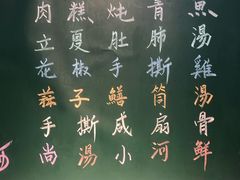 肉糕炖青魚
立夏肚肺湯
花椒手撕雞
蒜子鱔筒湯
手撕咸扇骨
尚湯小河鮮